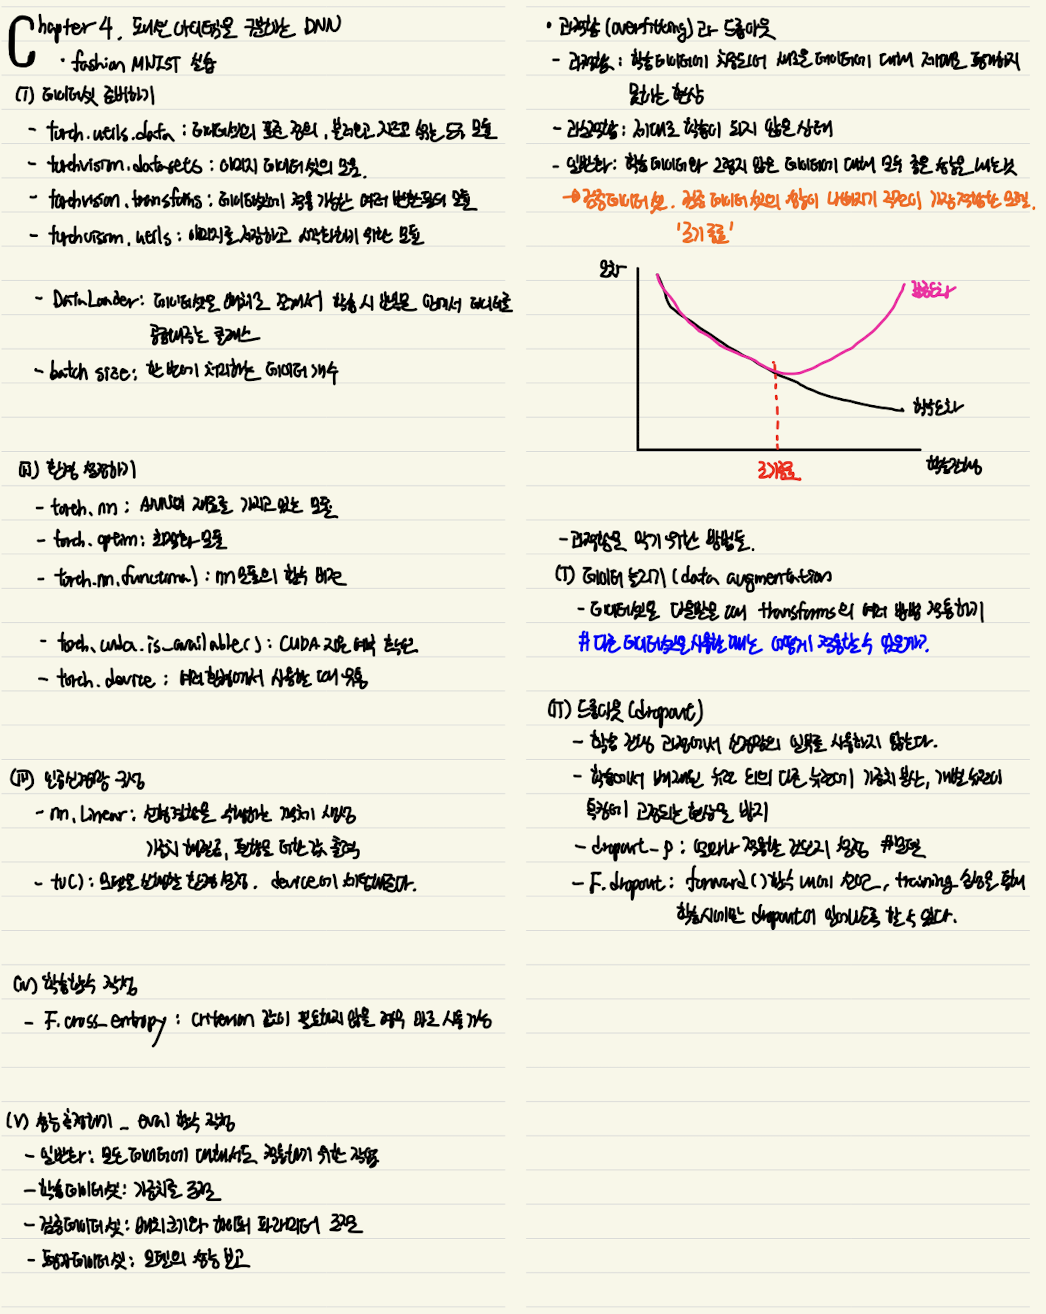 Chapter 4. 패션 아이템을 구분하는 DNN
· fashion MNIST 실습
(I) 데이터셋 준비하기
- torch.utils.data : 데이터셋의 표준 정의, 불러오고 자르고 섞는 도구 모듈
- torchvision.datasets : 이미지 데이터셋의 모음.
- torchvision.transforms : 데이터셋에 적용 가능한 여러 변환필터 모듈
- torchvision.utils : 이미지를 저장하고 시각화하기 위한 모듈
- DataLoader : 데이터셋을 배치로 쪼개서 학습 시 반복문 안에서 데이터를
공급해주는 클래스
- batch size : 한 번에 처리하는 데이터 개수
(II) 환경 설정하기
- torch.nn : ANN의 재료를 가지고 있는 모듈
- torch.optim : 최적화 모듈
- torch.nn.functional : nn모듈의 함수 버전
- torch.cuda.is_available() : CUDA 지원 여부 확인
- torch.device : 여러 환경에서 사용할 때 유용
(III) 인공신경망 구성
- nn.Linear : 선형결합을 수행하는 객체 생성
가중치 행렬곱, 편향을 더한 값 출력
- to() : 모델을 선택한 환경 설정. device에 적답해준다.
(IV) 학습함수 작성
- F.cross_entropy : criterion 값이 필요하지 않을 경우 바로 사용 가능
(V) 성능 측정하기 _ eval 함수 작성
- 일반화 : 모든 데이터에 대해서도 적용하기 위한 작업
- 학습데이터셋 : 가중치를 조절
- 검증데이터셋 : 배치크기와 하이퍼 파라미터 조절
- 평가데이터셋 : 모델의 성능 보고
· 과적합 (overfitting) 과 드롭아웃
- 과적합 : 학습 데이터에 치중되어 새로운 데이터에 대해 제대로 동작하지
못하는 현상
- 과소적합 : 제대로 학습이 되지 않은 상태
- 일반화 : 학습 데이터와 그렇지 않은 데이터에 대해 모두 좋은 성능을 내는것
→ 검증데이터셋. 검증 데이터 셋의 성능이 나빠지기 직전이 가장 적합한 모델.
'조기 종료'
오차
검증오차
학습오차
조기종료
학습진행
- 과적합을 막기 위한 방법들.
(I) 데이터 늘리기 (data augmentation
- 데이터셋을 다운받을 때 transforms의 여러 방법 적용하기
# 다른 데이터셋을 사용할 때는 어떻게 적용할 수 있을까?
(II) 드롭아웃 (dropout)
- 학습 진행 과정에서 신경망의 일부를 사용하지 않는다.
- 학습에서 배제된 뉴런 외의 다른 뉴런에 가중치 분산, 개별 뉴런이
특징에 고정되는 현상을 방지
- dropout_p : 얼마나 적용할 건지 설정 #모델
- F.dropout : forward()함수 내에 선언, training 설정을 통해
학습시에만 dropout이 일어나도록 할 수 있다.